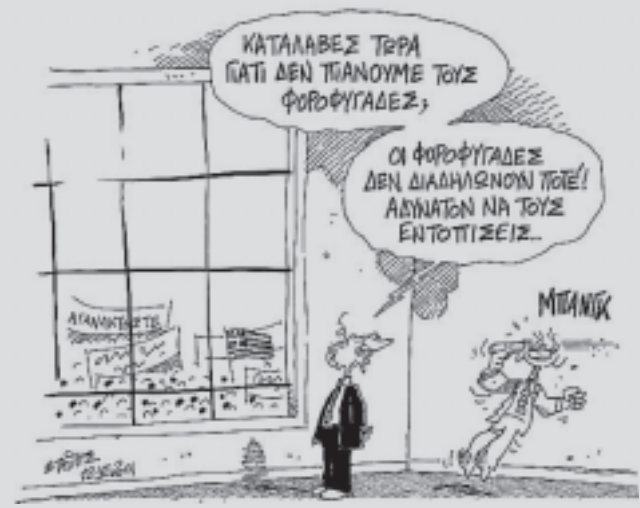 ΚΑΤΑΛΑΒΕΣ ΤΩΡΑ
ΓΙΑΤΙ ΔΕΝ ΠΙΑΝΟΥΜΕ ΤΟΥΣ
ΦΟΡΟΦΥΓΑΔΕΣ;
ΟΙ ΦΟΡΟΦΥΓΑΔΕΣ
ΔΕΝ ΔΙΑΔΗΛΩΝΟΥΝ ΠΟΤΕ!
ΑΔΥΝΑΤΟΝ ΝΑ ΤΟΥΣ
ΕΝΤΟΠΙΣΕΙΣ...